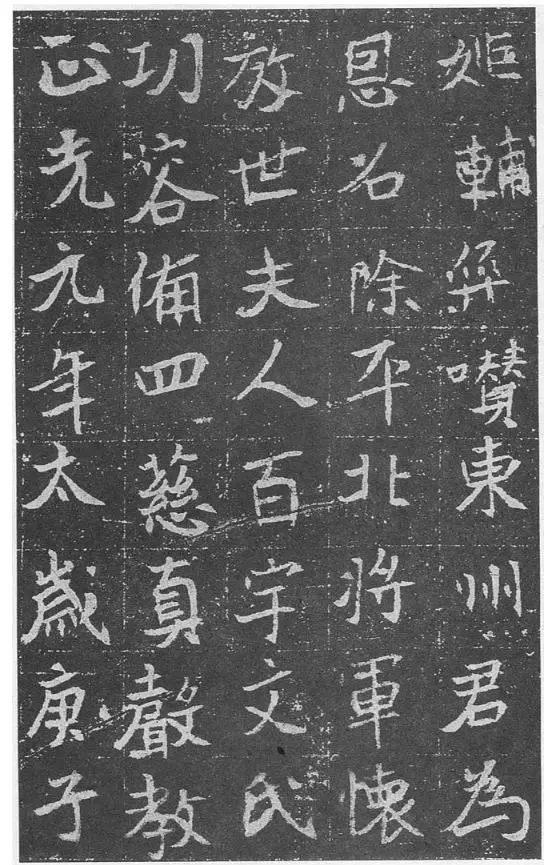 姬輔囋東州君為
恩名除平北將軍懷
放世夫人百宇文氏
功容備四慈真聲教
正光元年太歲庚子